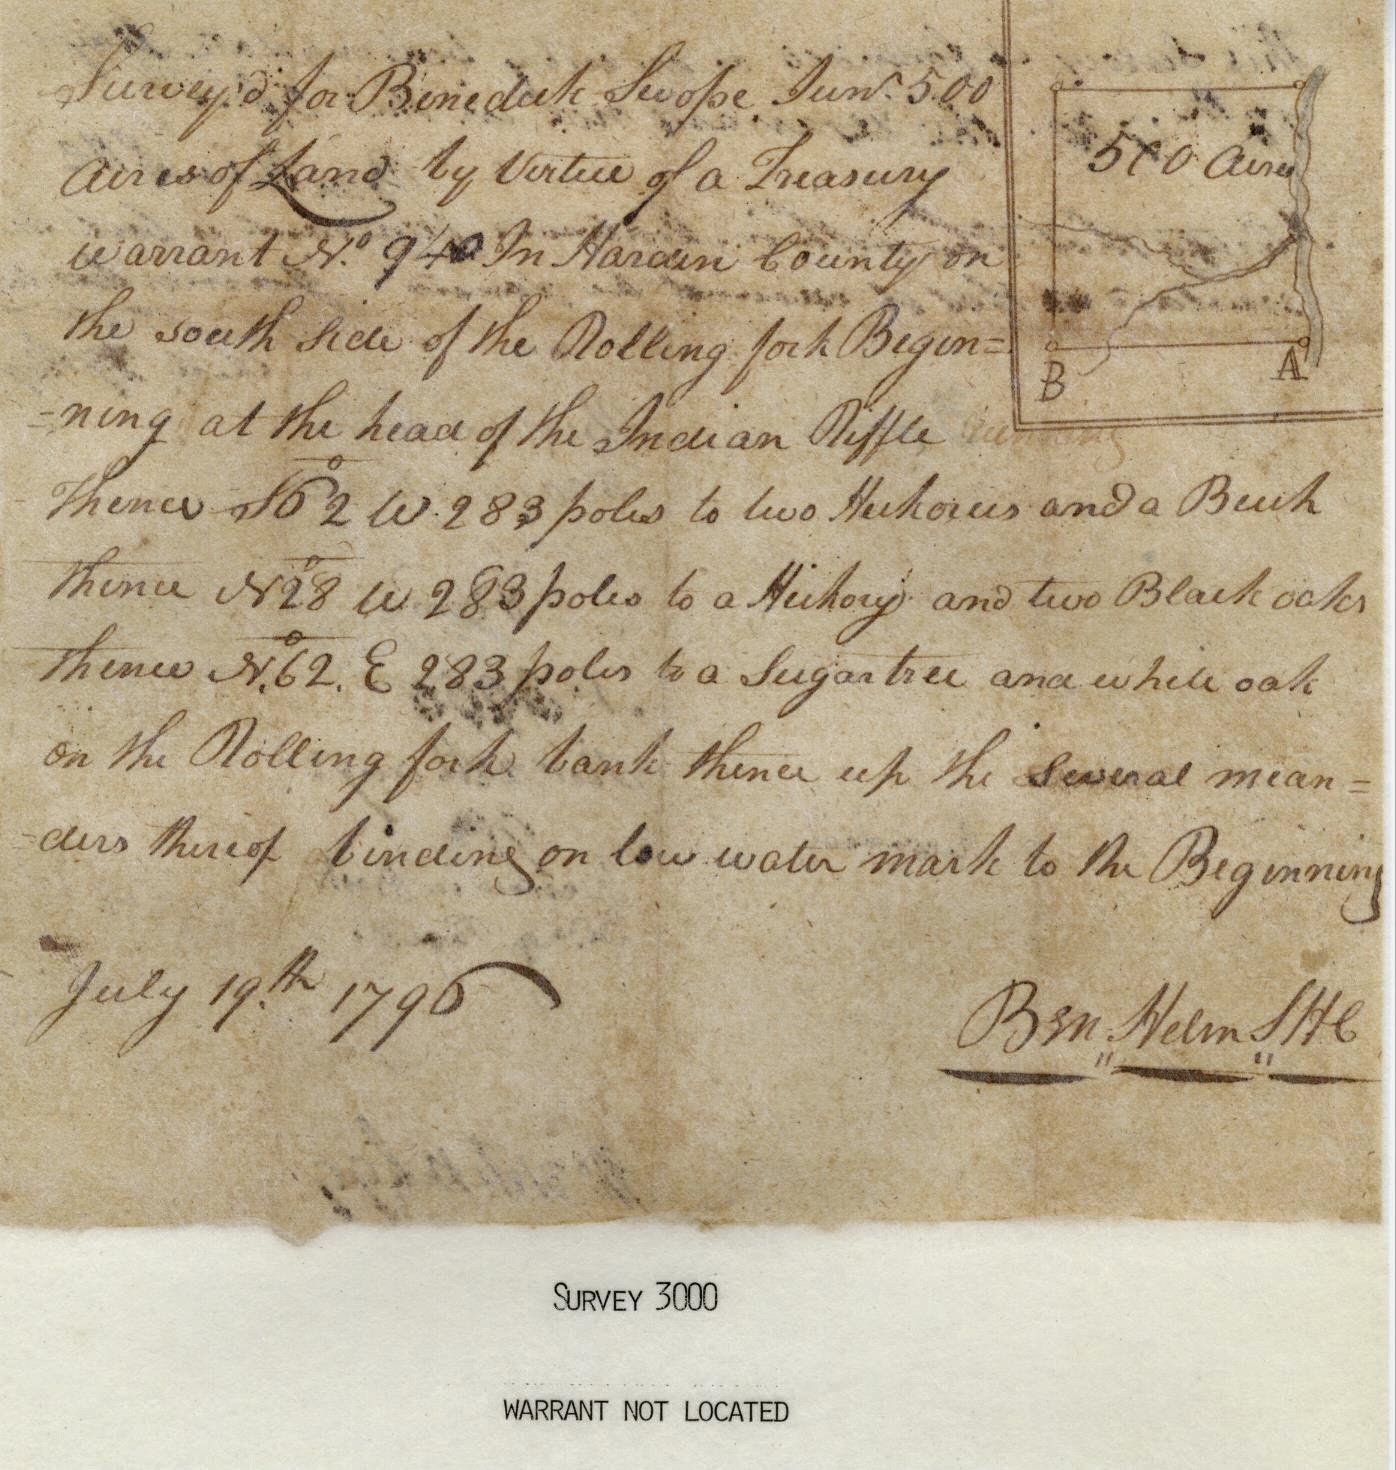 Survey'd for Benedick Swope Junr. 500
acres of Land by Virtue of a Treasury
warrant No. 940 In Hardin County on
the south side of the Rolling fork Begin=
=ning at the head of the Indian Riffle
Thence S62° W 283 poles to two Hickories and a Beech
thence N28° W 283 poles to a Hickory and two Black oaks
thence N.62.° E 283 poles to a Sugartree and white oak
on the Rolling fork bank thence up the Several mean=
=ders thereof binding on low water mark to the Beginning
July 19.th 1796
Ben,, Helm S,,HC
500 acres
B
A
SURVEY 3000
WARRANT NOT LOCATED